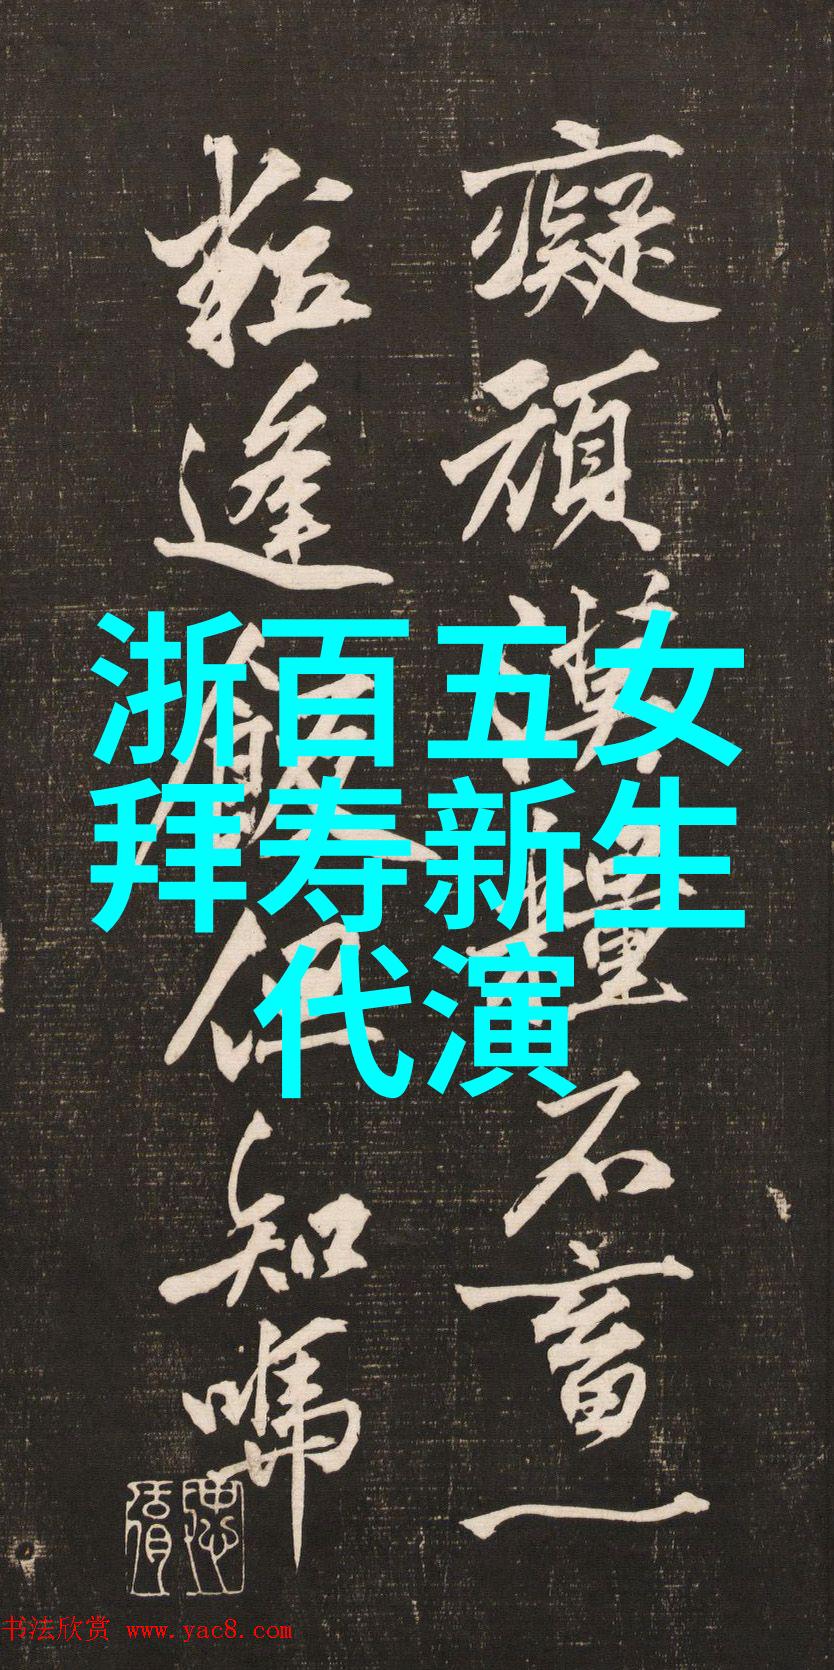 浙百五女
拜寿新生
代演
癡頑石畜一
粒逢但知
书法欣赏 www.yac8.com